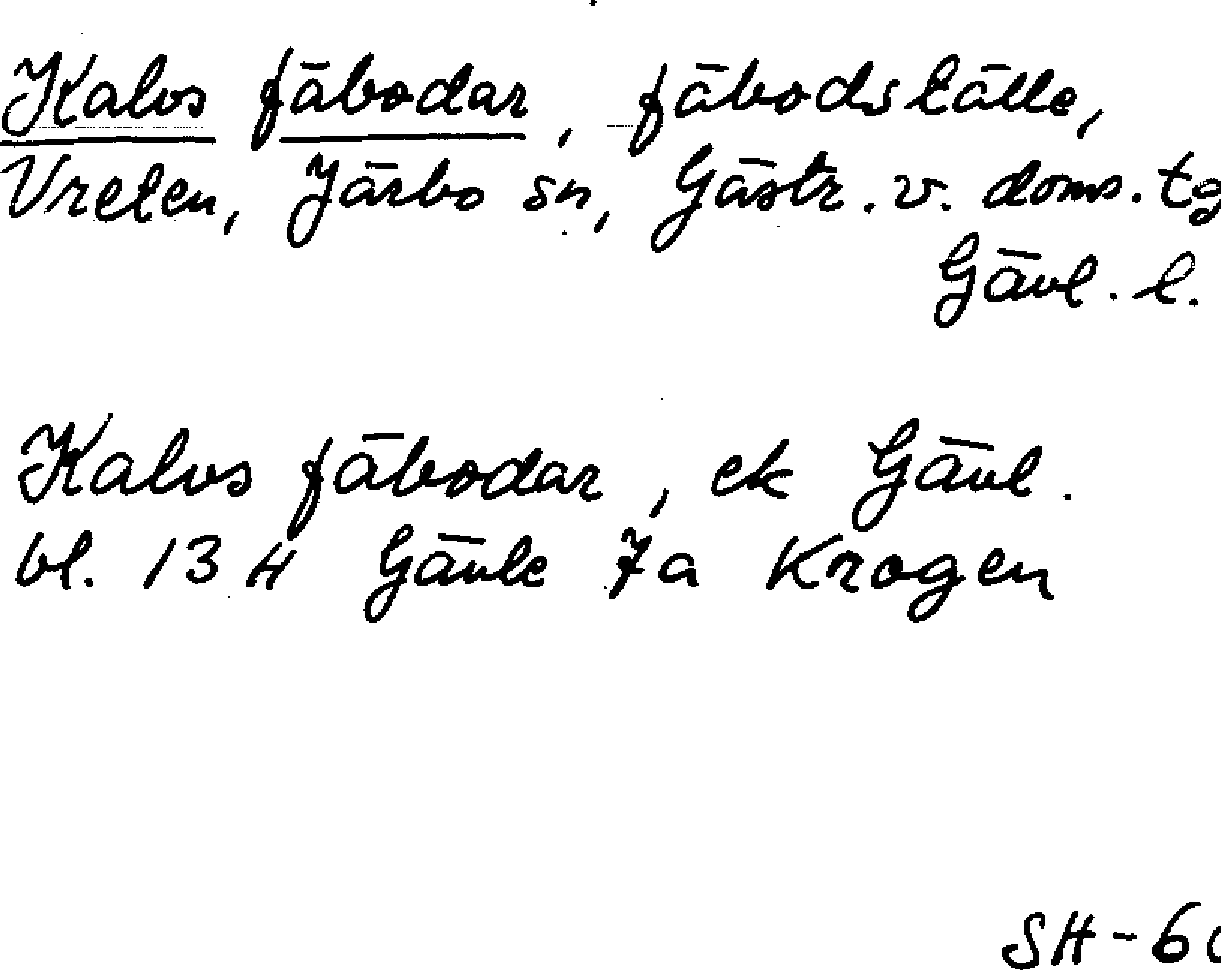 Kalvs fäbodar, fäbodställe,
Vreten, Järbo sn, Gästr. v. doms. tg
Gävl. l.
Kalvs fäbodar, ek Gävl.
bl. 13 H Gävle 7a Krogen
SH-60